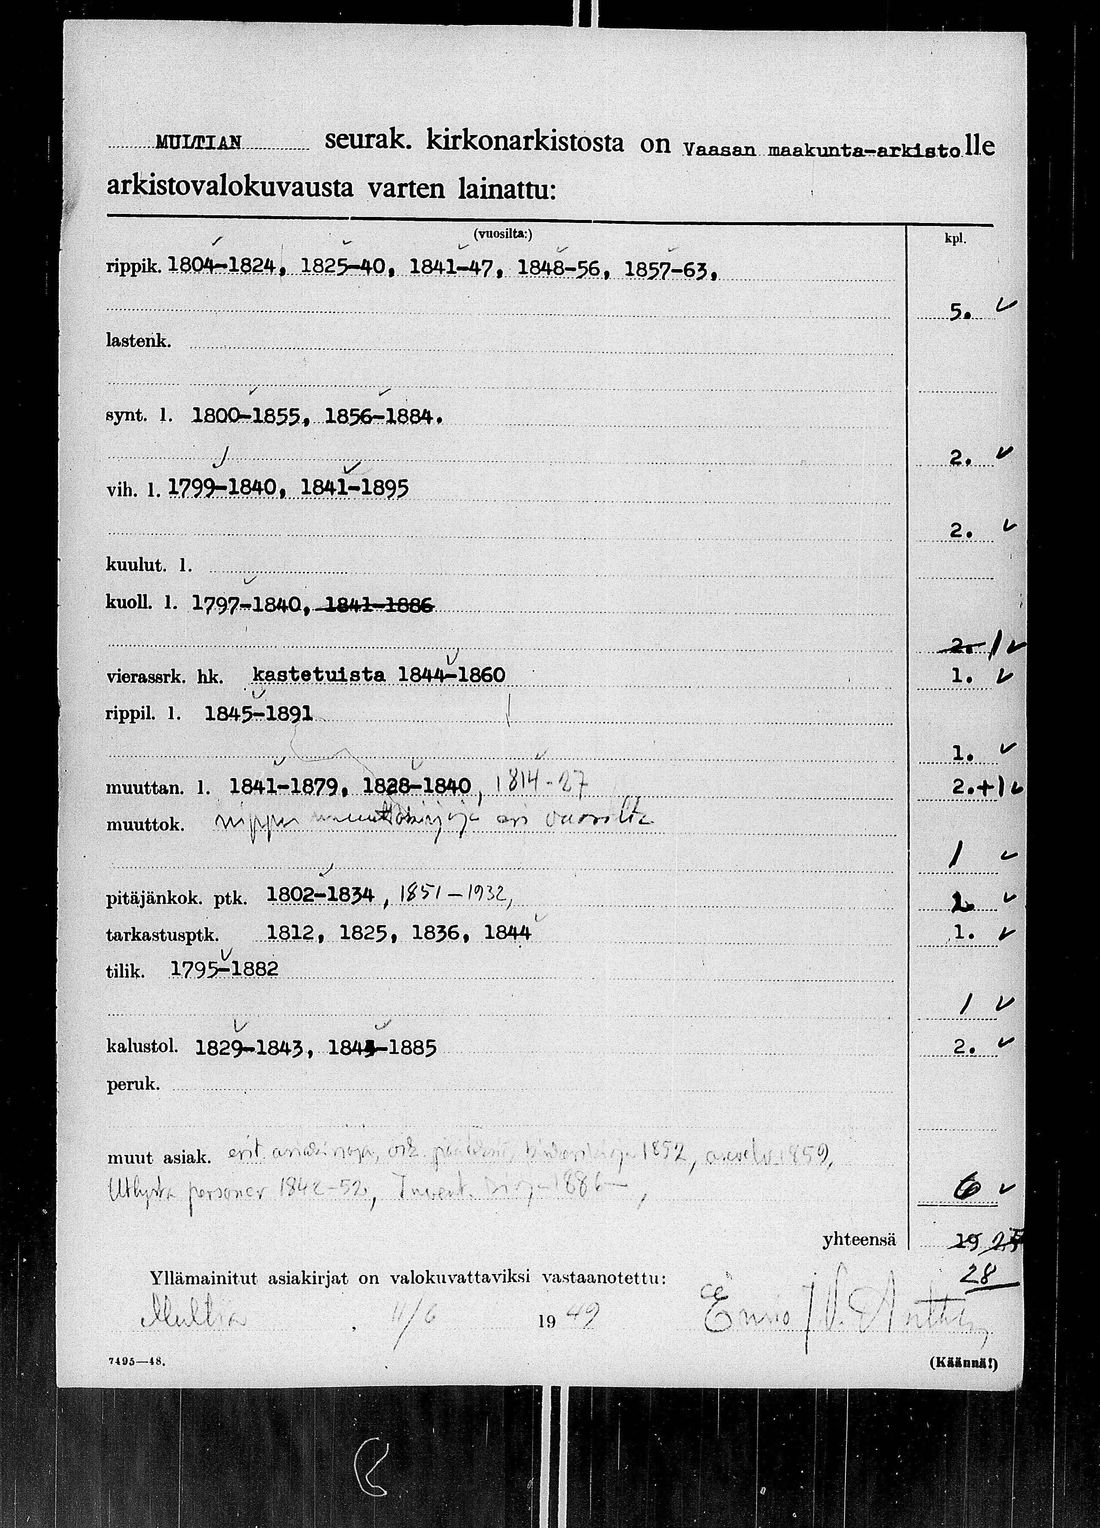 MULTIAN seurak. kirkonarkistosta on Vaasan maakunta-arkisto lle
arkistovalokuvausta varten lainattu:
(vuosilta:) kpl.
rippik. 1804-1824, 1825-40, 1841-47, 1848-56, 1857-63,
5. ✓
lastenk.
synt. l. 1800-1855, 1856-1884.
2. ✓
vih. l. 1799-1840, 1841-1895
2. ✓
kuulut. l.
kuoll. l. 1797-1840, 1841-1886
2. 1 ✓
vierassrk. hk. kastetuista 1844-1860 1. ✓
rippil. l. 1845-1891
1. ✓
muuttan. l. 1841-1879, 1828-1840, 1814-27 2.+1 ✓
muuttok. nippu muuttokirjoja eri vuosilta
1 ✓
pitäjänkok. ptk. 1802-1834, 1851-1932, 2 ✓
tarkastusptk. 1812, 1825, 1836, 1844 1. ✓
tilik. 1795-1882
1 ✓
kalustol. 1829-1843, 1843-1885 2. ✓
peruk.
muut asiak. erit. asiakirjoja, 1852, 1859,
Utlysta personer 1842-52, Invent. 1886-,
6 ✓
yhteensä 19 25
28
Yllämainitut asiakirjat on valokuvattaviksi vastaanotettu:
Multia 11/6 1949 Eino
7495—48. (Käännä!)